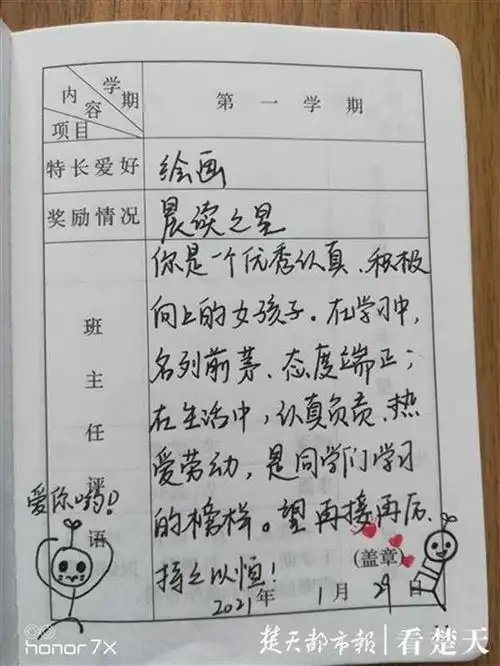 学期
内容
项目
第一学期
特长爱好
绘画
奖励情况
晨读之星
班主任评语
你是一个优秀认真、积极
向上的女孩子。在学习中,
名列前茅、态度端正;
在生活中,认真负责、热
爱劳动,是同学们学习
的榜样。望再接再厉、
持之以恒!
爱你哟!
(盖章)
2021年1月29日
honor 7X
楚天都市报|看楚天